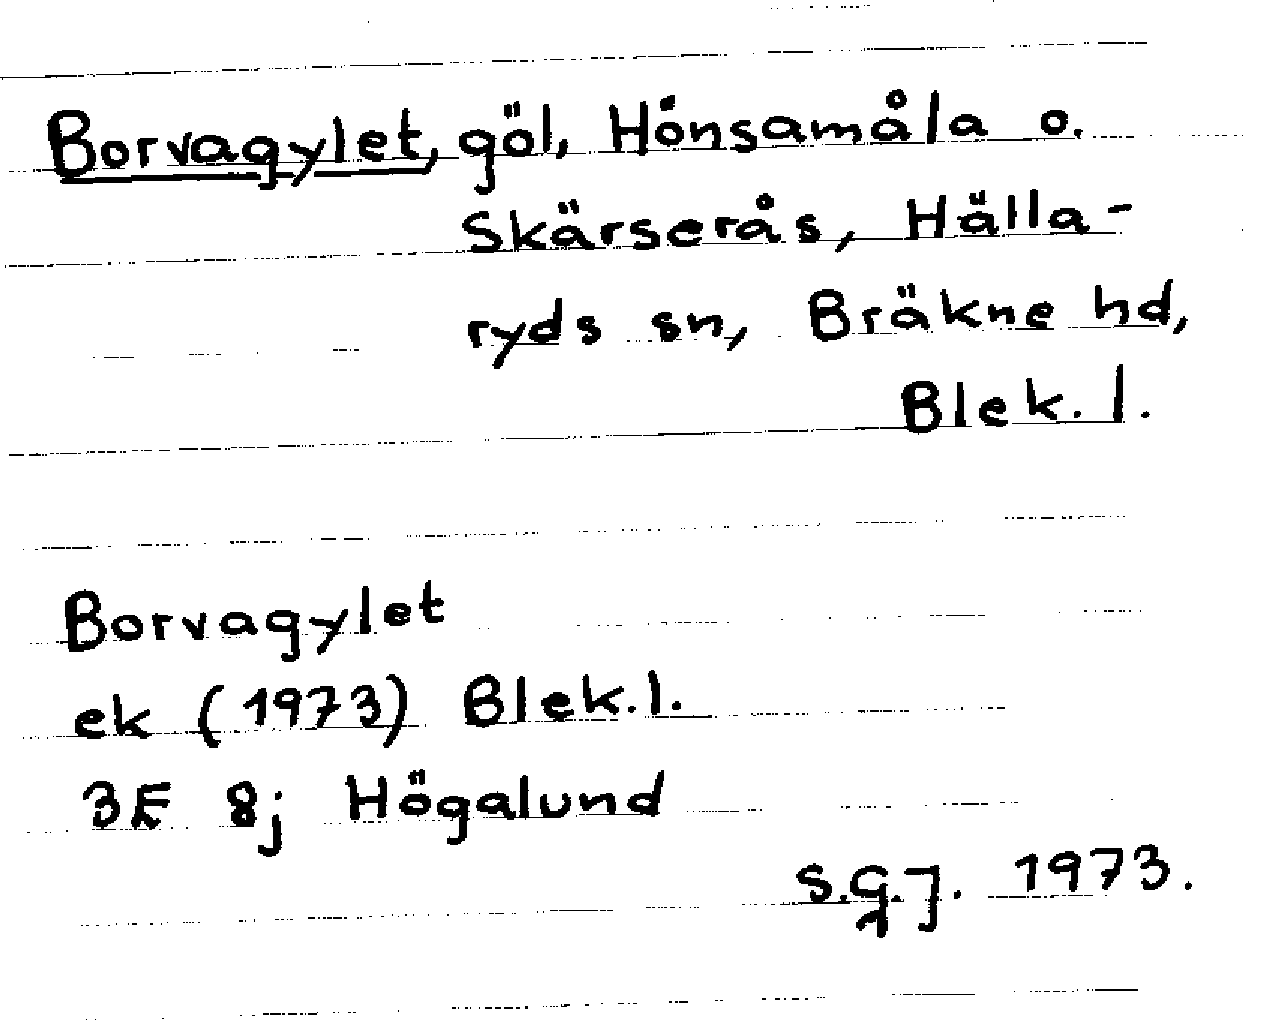 Borvagylet, göl, Hönsamåla o.
Skärserås, Hälla-
ryds sn, Bräkne hd,
Blek. l.
Borvagylet
ek (1973) Blek. l.
3E 8j Högalund
S.G.J. 1973.